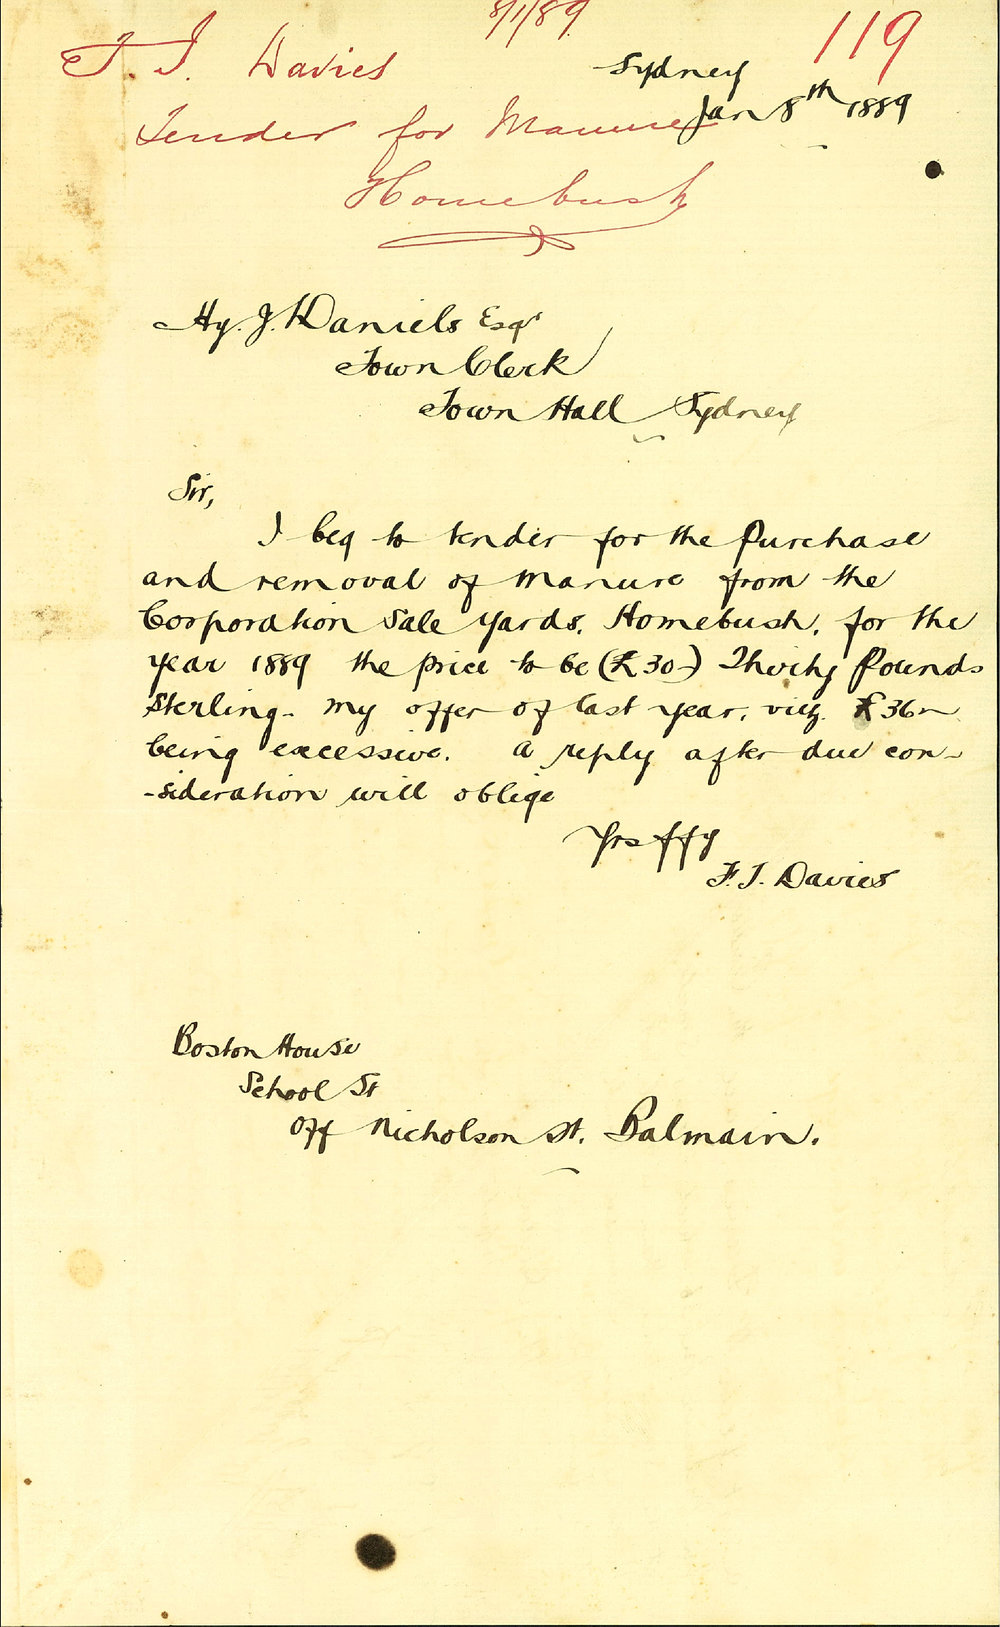 8/1/89
119
F. J. Davies
Tender for Manure
Homebush
Sydney
Jan 8th 1889
Hy. J. Daniels Esqr
Town Clerk
Town Hall Sydney
Sir,
I beg to tender for the Purchase
and removal of manure from the
Corporation Sale Yards, Homebush, for the
year 1889 the price to be (£30-) Thirty Pounds
Sterling - my offer of last year, viz. £36-
being excessive. A reply after due con-
-sideration will oblige
Yrs ffy
F. J. Davies
Boston House
School St
Off Nicholson St. Balmain.